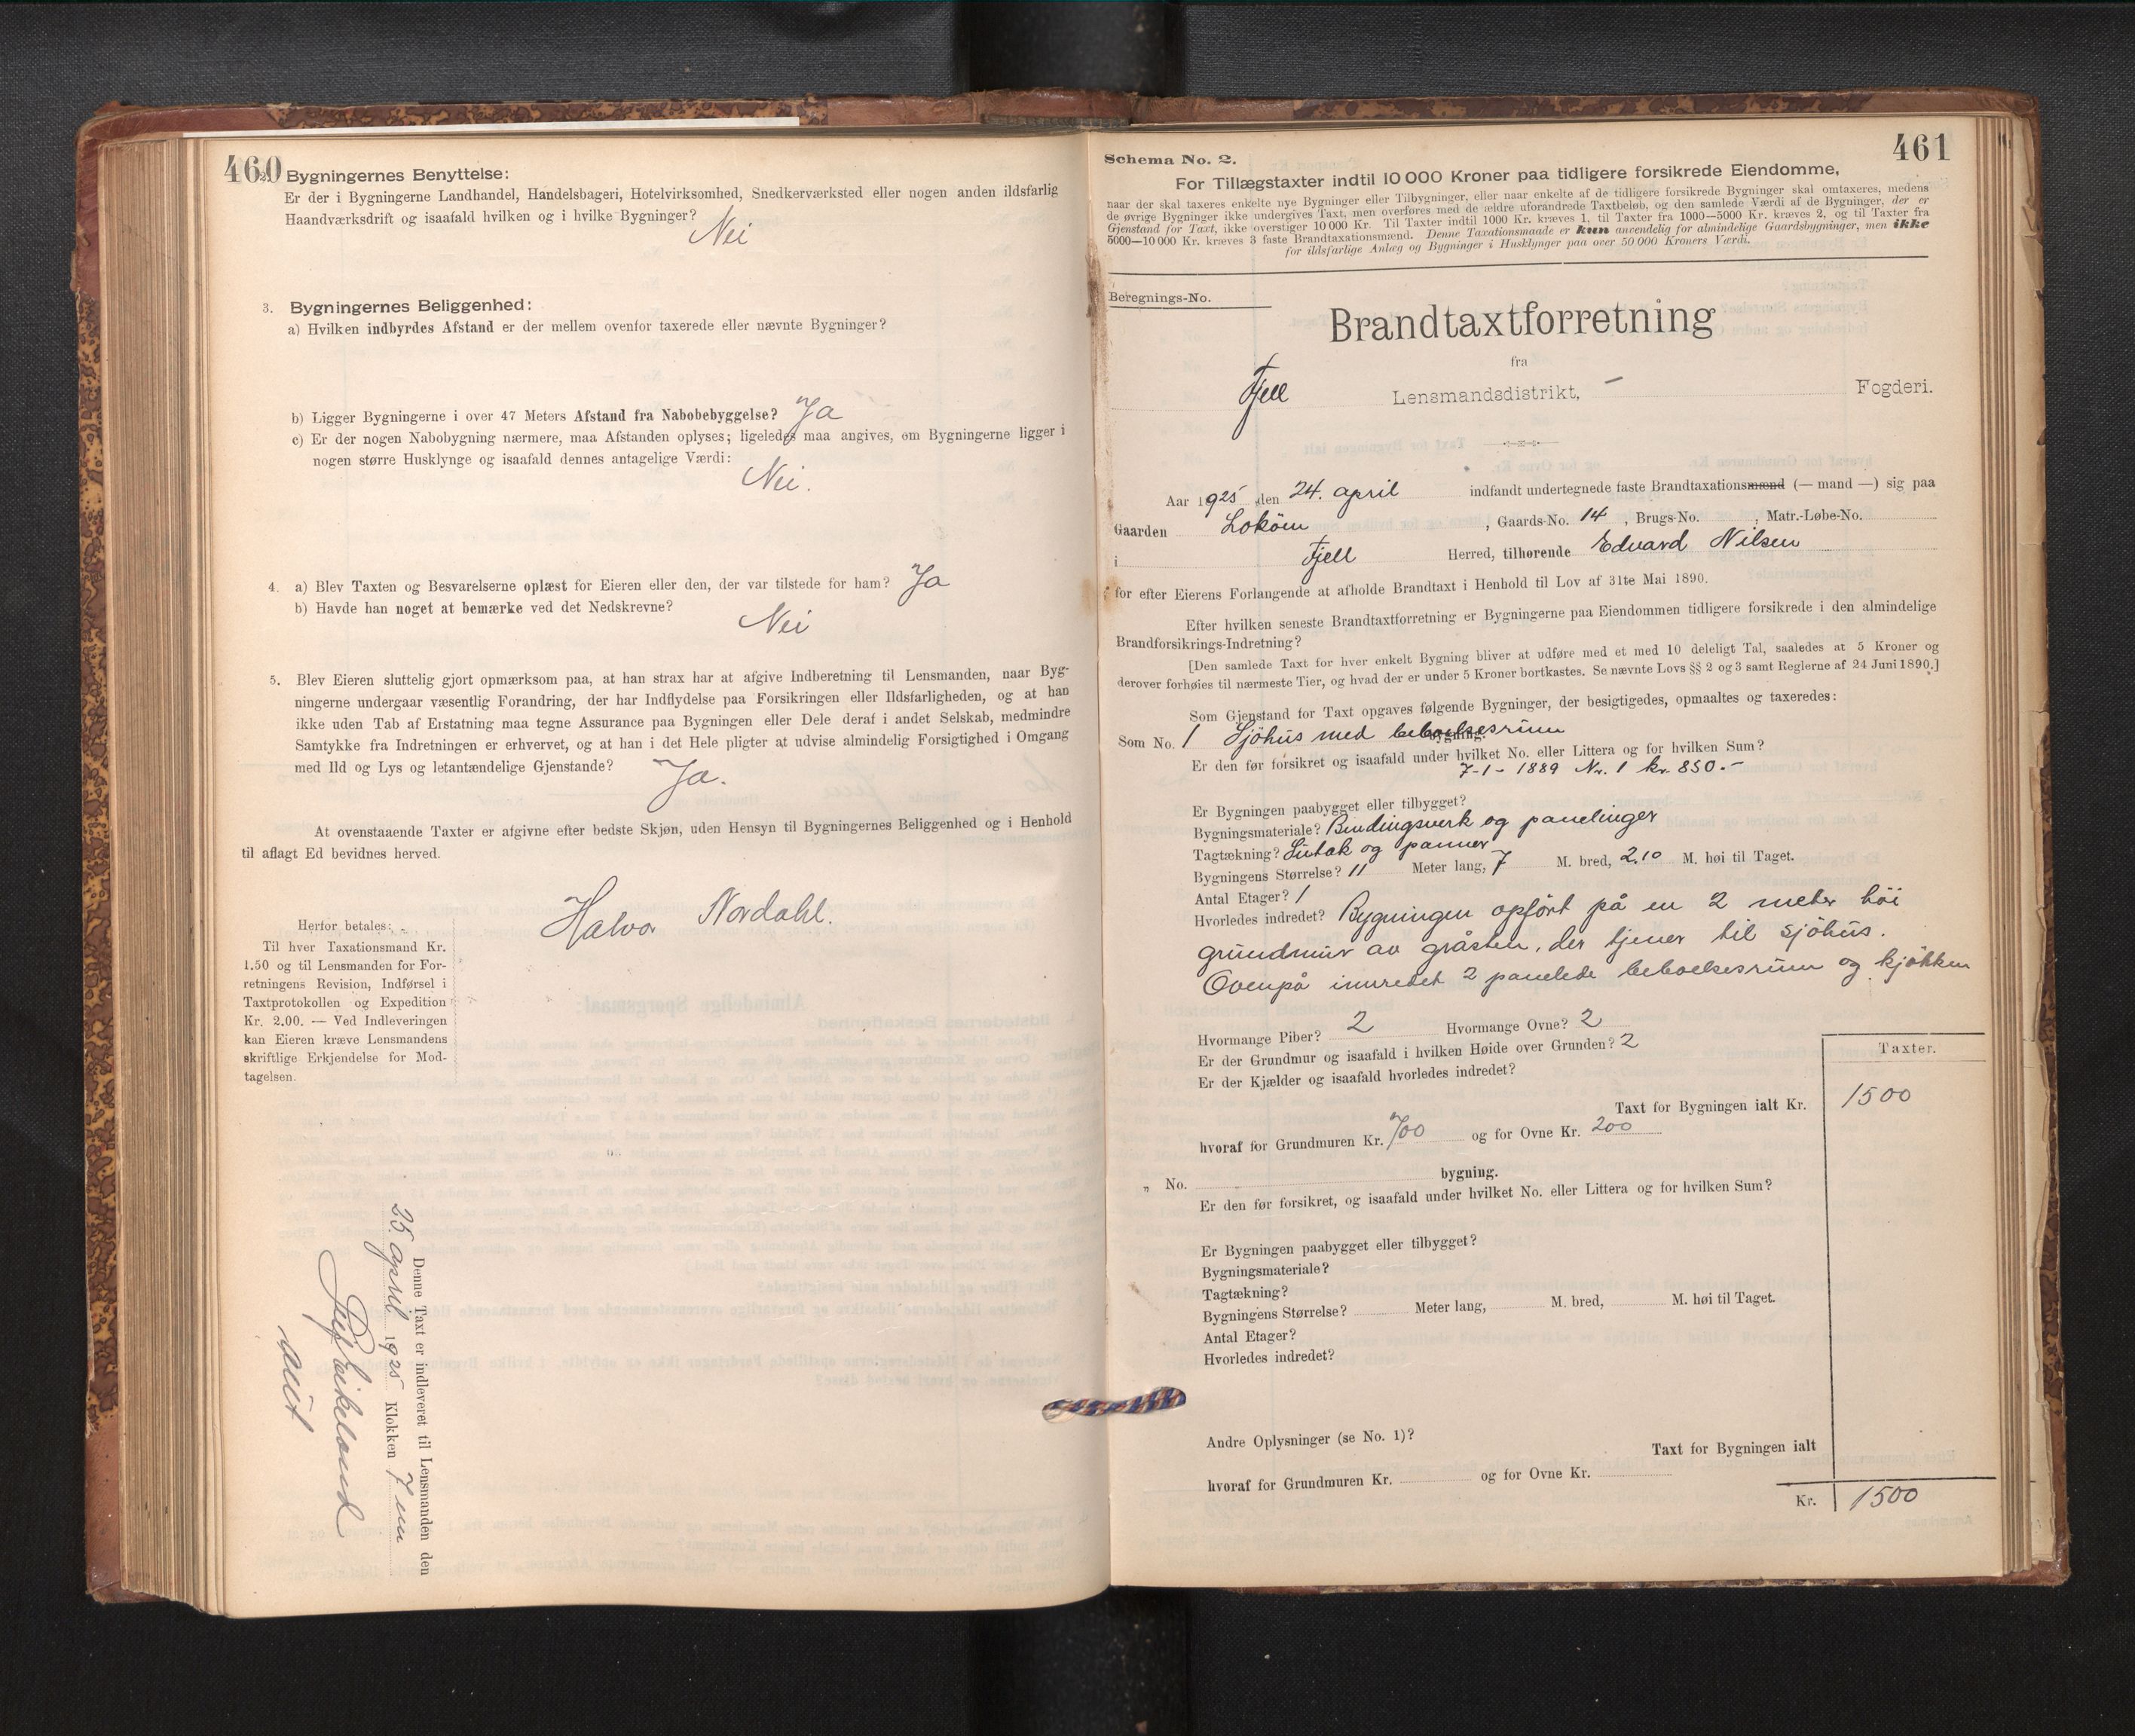 460
2. Bygningernes Benyttelse:
Er der i Bygningerne Landhandel, Handelsbageri, Hotelvirksomhed, Snedkerværksted eller nogen anden ildsfarlig
Haandværksdrift og isaafald hvilken og i hvilke Bygninger?
Nei
3. Bygningernes Beliggenhed:
a) Hvilken indbyrdes Afstand er der mellem ovenfor taxerede eller nævnte Bygninger?
b) Ligger Bygningerne i over 47 Meters Afstand fra Nabobebyggelse? Ja
c) Er der nogen Nabobygning nærmere, maa Afstanden oplyses; ligeledes maa angives, om Bygningerne ligger i
nogen større Husklynge og isaafald dennes antagelige Værdi:
Nei.
4. a) Blev Taxten og Besvarelserne oplæst for Eieren eller den, der var tilstede for ham? Ja
b) Havde han noget at bemærke ved det Nedskrevne?
Nei
5. Blev Eieren sluttelig gjort opmærksom paa, at han strax har at afgive Indberetning til Lensmanden, naar Byg-
ningerne undergaar væsentlig Forandring, der har Indflydelse paa Forsikringen eller Ildsfarligheden, og at han
ikke uden Tab af Erstatning maa tegne Assurance paa Bygningen eller Dele deraf i andet Selskab, medmindre
Samtykke fra Indretningen er erhvervet, og at han i det Hele pligter at udvise almindelig Forsigtighed i Omgang
med Ild og Lys og letantændelige Gjenstande? Ja.
At ovenstaaende Taxter er afgivne efter bedste Skjøn, uden Hensyn til Bygningernes Beliggenhed og i Henhold
til aflagt Ed bevidnes herved.
Halvor Nordahl.
Herfor betales:
Til hver Taxationsmand Kr.
1.50 og til Lensmanden for For-
retningens Revision, Indførsel i
Taxtprotokollen og Expedition
Kr. 2.00. — Ved Indleveringen
kan Eieren kræve Lensmandens
skriftlige Erkjendelse for Mod-
tagelsen.
Denne Taxt er indleveret til Lensmanden den
25. april 1925 Klokken 7 em
461
Schema No. 2.
For Tillægstaxter indtil 10 000 Kroner paa tidligere forsikrede Eiendomme,
naar der skal taxeres enkelte nye Bygninger eller Tilbygninger, eller naar enkelte af de tidligere forsikrede Bygninger skal omtaxeres, medens
de øvrige Bygninger ikke undergives Taxt, men overføres med de ældre uforandrede Taxtbeløb, og den samlede Værdi af de Bygninger, der er
Gjenstand for Taxt, ikke overstiger 10 000 Kr. Til Taxter indtil 1000 Kr. kræves 1, til Taxter fra 1000—5000 Kr. kræves 2, og til Taxter fra
5000—10 000 Kr. kræves 3 faste Brandtaxationsmænd. Denne Taxationsmaade er kun anvendelig for almindelige Gaardsbygninger, men ikke
for ildsfarlige Anlæg og Bygninger i Husklynger paa over 50 000 Kroners Værdi.
Beregnings-No.
Brandtaxtforretning
fra
Fjell Lensmandsdistrikt, — Fogderi.
Aar 1925 den 24. april indfandt undertegnede faste Brandtaxationsmænd (— mand —) sig paa
Gaarden Lokøen, Gaards-No. 14, Brugs-No. , Matr.-Løbe-No.
i Fjell Herred, tilhørende Edvard Nilsen
for efter Eierens Forlangende at afholde Brandtaxt i Henhold til Lov af 31te Mai 1890.
Efter hvilken seneste Brandtaxtforretning er Bygningerne paa Eiendommen tidligere forsikrede i den almindelige
Brandforsikrings-Indretning?
[Den samlede Taxt for hver enkelt Bygning bliver at udføre med et med 10 deleligt Tal, saaledes at 5 Kroner og
derover forhøies til nærmeste Tier, og hvad der er under 5 Kroner bortkastes. Se nævnte Lovs §§ 2 og 3 samt Reglerne af 24 Juni 1890.]
Som Gjenstand for Taxt opgaves følgende Bygninger, der besigtigedes, opmaaltes og taxeredes:
Som No. 1 Sjöhus med beboelsesrum bygning.
Er den før forsikret og isaafald under hvilket No. eller Littera og for hvilken Sum?
7-1-1889 Nr. 1 kr. 850.-
Er Bygningen paabygget eller tilbygget?
Bygningsmateriale? Bindingsverk og panelinger
Tagtækning? Sutak og panner
Bygningens Størrelse? 11 Meter lang, 7 M. bred, 2.10 M. høi til Taget.
Antal Etager? 1
Hvorledes indredet? Bygningen opført på en 2 meter høi
grundmur av gråsten, der tjener til sjøhus.
Ovenpå innredet 2 panelede beboelsesrum og kjøkken
Hvormange Piber? 2 Hvormange Ovne? 2
Er der Grundmur og isaafald i hvilken Høide over Grunden? 2
Er der Kjælder og isaafald hvorledes indredet?
Taxter.
Taxt for Bygningen ialt Kr. 1500
hvoraf for Grundmuren Kr. 700 og for Ovne Kr. 200
„ No. bygning.
Er den før forsikret, og isaafald under hvilket No. eller Littera og for hvilken Sum?
Er Bygningen paabygget eller tilbygget?
Bygningsmateriale?
Tagtækning?
Bygningens Størrelse? Meter lang, M. bred, M. høi til Taget.
Antal Etager?
Hvorledes indredet?
Andre Oplysninger (se No. 1)?
Taxt for Bygningen ialt
hvoraf for Grundmuren Kr. og for Ovne Kr.
Kr. 1500